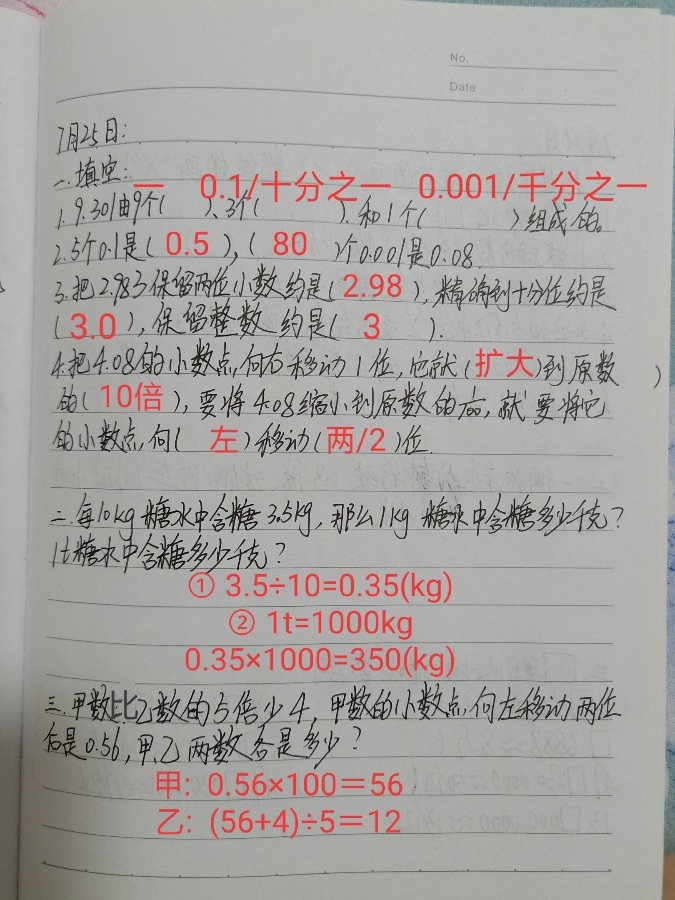 No.
Date
7月25日:
一.填空:
一 0.1/十分之一 0.001/千分之一
1.9.301由9个( )、3个( ).和1个( )组成的。
2.5个0.1是( 0.5 ),( 80 )个0.001是0.08
3.把2.983保留两位小数约是(2.98),精确到十分位约是
(3.0),保留整数约是( 3 ).
4.把4.08的小数点,向右移动1位,它就(扩大)到原数 )
的(10倍),要将4.08缩小到原数的1/100,就要将它
的小数点,向(左)移动(两/2)位.
二.每10kg糖水中含糖3.5kg,那么1kg糖水中含糖多少千克?
1t糖水中含糖多少千克?
① 3.5÷10=0.35(kg)
② 1t=1000kg
0.35×1000=350(kg)
三.甲数比乙数的5倍少4,甲数的小数点,向左移动两位
后是0.56,甲、乙两数各是多少?
甲: 0.56×100=56
乙: (56+4)÷5=12